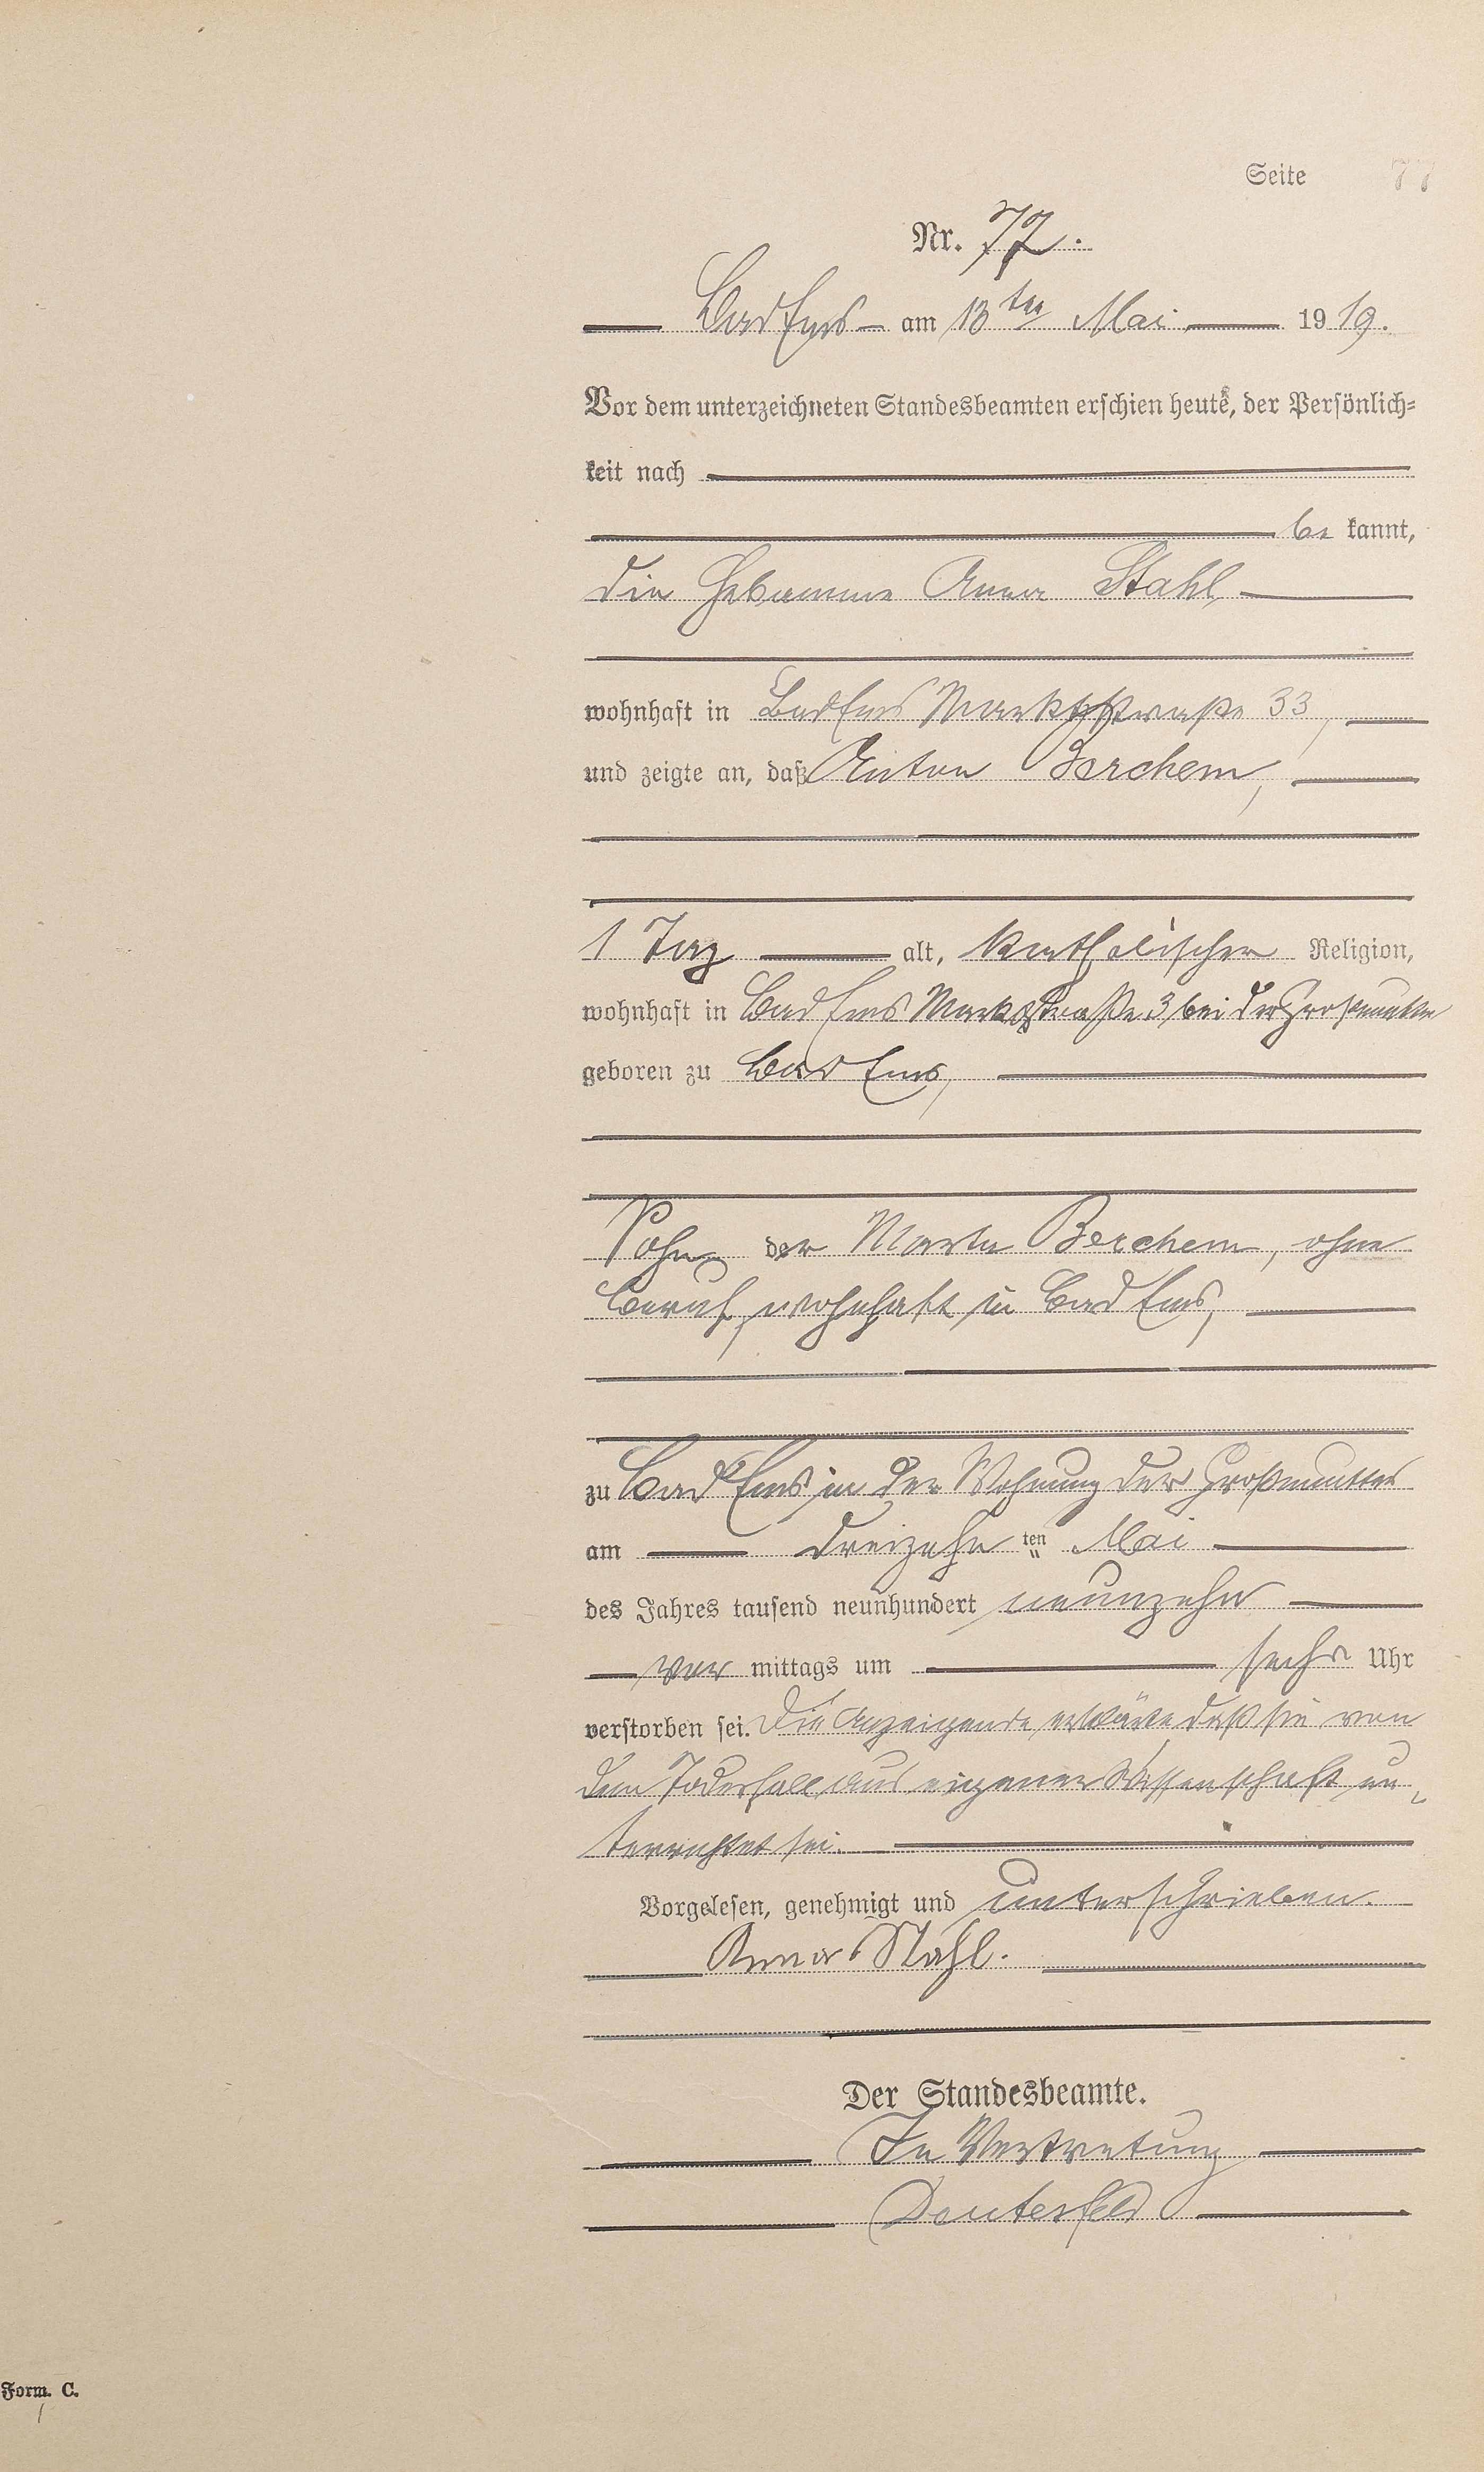 Seite 77
Nr. 77.
Bad Ems am 13ten Mai 1919.
Vor dem unterzeichneten Standesbeamten erschien heute, der Persönlich-
keit nach
be kannt,
die Hebamme Anna Stahl
wohnhaft in Bad Ems Marktstraße 33,
und zeigte an, daß Anton Berchem,
1 Tag alt, katholischer Religion,
wohnhaft in Bad Ems Marktstraße 3 bei der Großmutter
geboren zu Bad Ems,
Sohn der Berchem, ohne
Beruf, wohnhaft in Bad Ems,
zu Bad Ems in der Wohnung der Großmutter
am dreizehn ten Mai
des Jahres tausend neunhundert neunzehn
vor mittags um sechs Uhr
verstorben sei. Die Anzeigende erkläre daß sie von
dem Todesfall aus eigener Wissenschaft un-
terrichtet sei.
Vorgelesen, genehmigt und unterschrieben.
Anna Stahl.
Der Standesbeamte.
In Vertretung
Form. C.